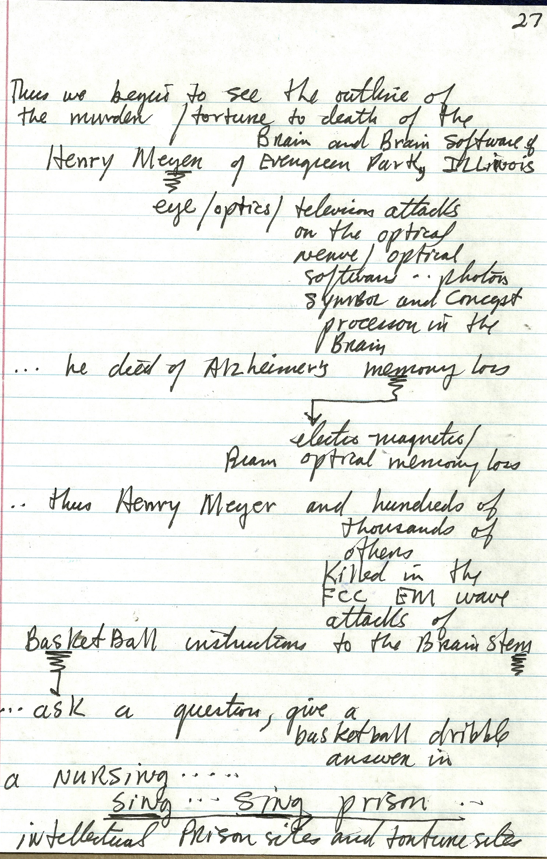 27
Thus we begin to see the outline of
the murder / torture to death of the
Brain and Brain Software of
Henry Meyer of Evergreen Park, Illinois
eye / optics / television attacks
on the optical
nerve / optical
software .. photon
symbol and concept
processor in the
Brain
... he died of Alzheimer's memory loss
electro-magnetic /
Brain optical memory loss
.. thus Henry Meyer and hundreds of
thousands of
others
Killed in the
FCC EM wave
attacks of
BasketBall instructions to the Brain Stem
... ask a question, give a
basketball dribble
answer in
a NURSing .....
Sing ... Sing prison ..
intellectual Prison sites and torture sites